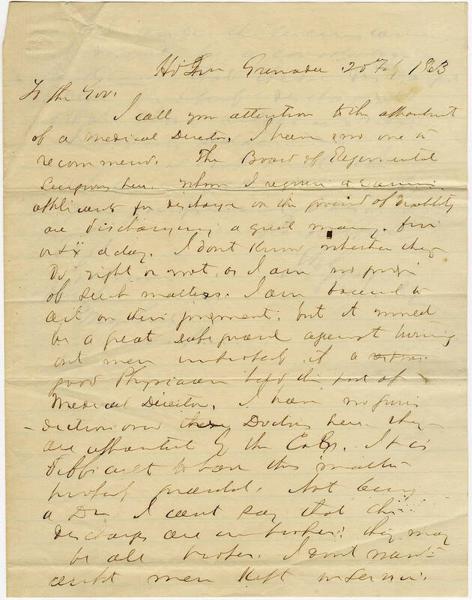 Hd Qrs Grenada 20 Feb 1863
To the Gov.
I call your attention to the appointment
of a Medical Director. I have no one to
recommend. The Board of Regimental
Surgeons here whom I require to examine
applicants for discharge on the ground of disability
are discharging a great many. five
or six a day. I don't know whether they
do right or not, as I am no judge
of such matters. I am bound to
act on their judgment, but it would
be a great safeguard against turning
out men improperly if a
good Physician held the post of
Medical Director. I have no juris
diction over these Doctors here. they
are appointed by the Col. It is
difficult to have this matter
properly guarded. Not being
a Dr I cant say that the
discharges are improper: they may
be all proper. I dont want
unfit men kept in service.